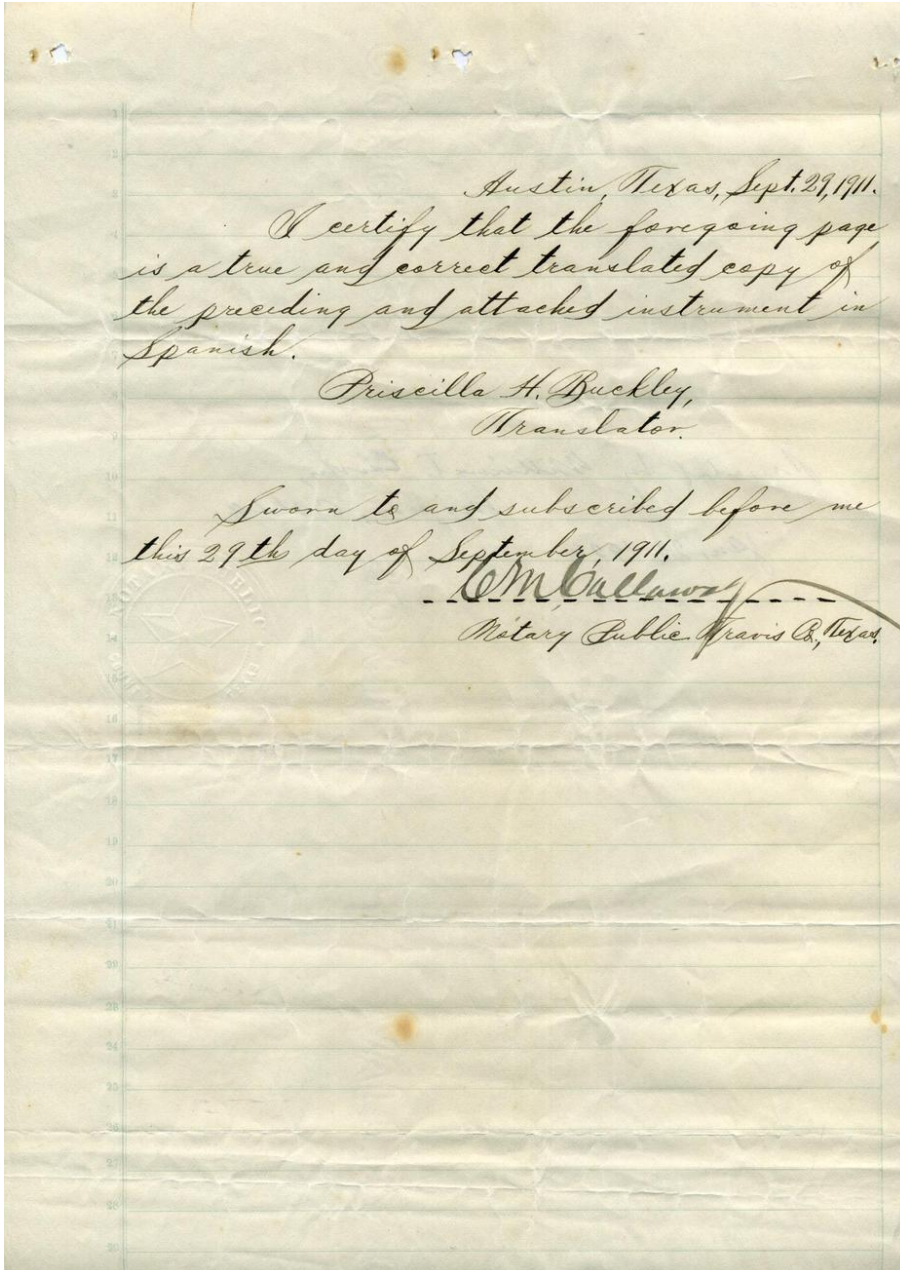 Austin, Texas, Sept. 29, 1911.
I certify that the foregoing page
is a true and correct translated copy of
the preceding and attached instrument in
Spanish.
Priscilla H. Buckley,
Translator.
Sworn to and subscribed before me
this 29th day of September, 1911.
C M Callaway
Notary Public Travis Co., Texas.